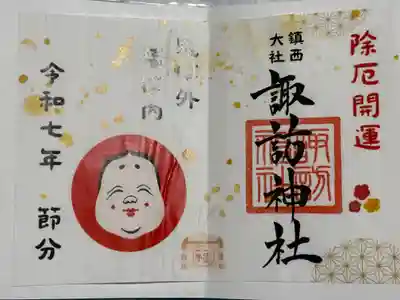 除厄開運
鎮西
大社
諏訪神社
鬼は外
福は内
令和七年 節分